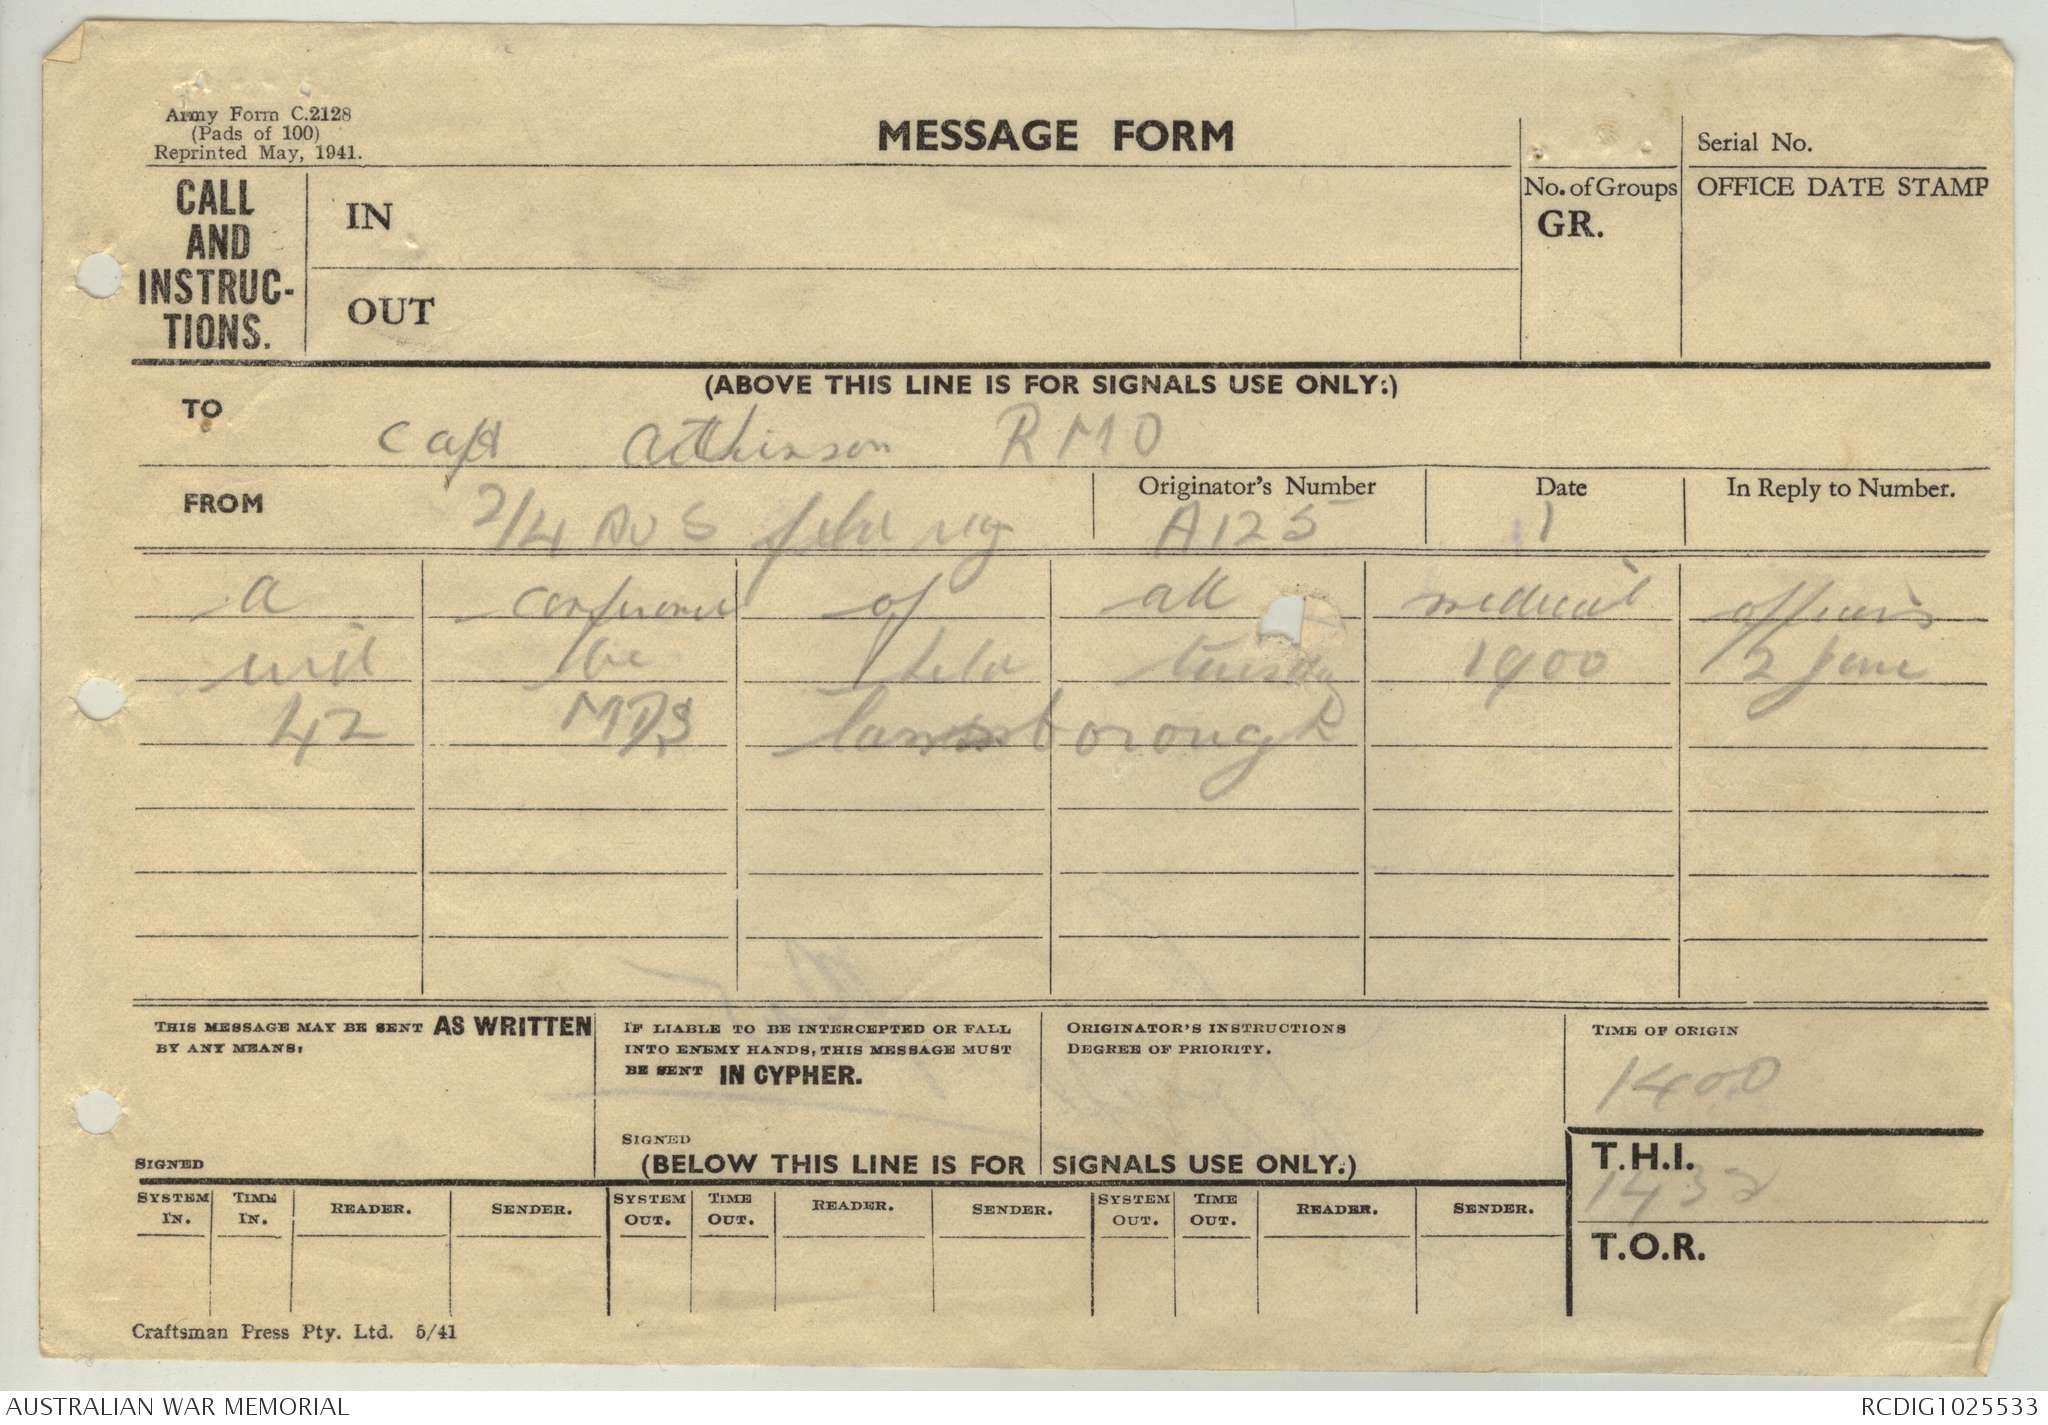 Army Form C.2128
(Pads of 100)
Reprinted May, 1941.
MESSAGE FORM
Serial No.
CALL AND INSTRUC- TIONS.
IN
OUT
No. of Groups
GR.
OFFICE DATE STAMP
(ABOVE THIS LINE IS FOR SIGNALS USE ONLY.)
TO Capt Atkinson RMO
FROM 2/4 AUS field reg
Originator's Number A125
Date 1
In Reply to Number.
a conference of all medical officers
will be held tuesday 1900 2 June
42 MDS borough
THIS MESSAGE MAY BE SENT AS WRITTEN
BY ANY MEANS.
SIGNED
IF LIABLE TO BE INTERCEPTED OR FALL
INTO ENEMY HANDS, THIS MESSAGE MUST
BE SENT IN CYPHER.
SIGNED
ORIGINATOR'S INSTRUCTIONS
DEGREE OF PRIORITY.
TIME OF ORIGIN
1400
(BELOW THIS LINE IS FOR SIGNALS USE ONLY.)
T.H.I.
1432
T.O.R.
SYSTEM IN. TIME IN. READER. SENDER. SYSTEM OUT. TIME OUT. READER. SENDER. SYSTEM OUT. TIME OUT. READER. SENDER.
Craftsman Press Pty. Ltd. 5/41
AUSTRALIAN WAR MEMORIAL
RCDIG1025533